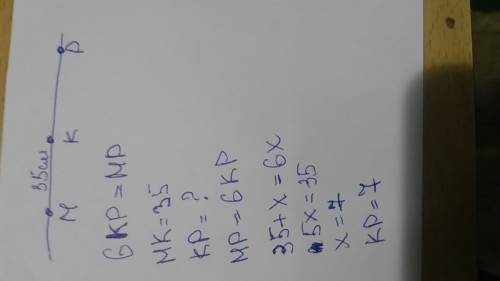 35см
М К Р
6KP=MP
MK=35
KP=?
MP=6KP
35+x=6x
5x=35
x=7
KP=7